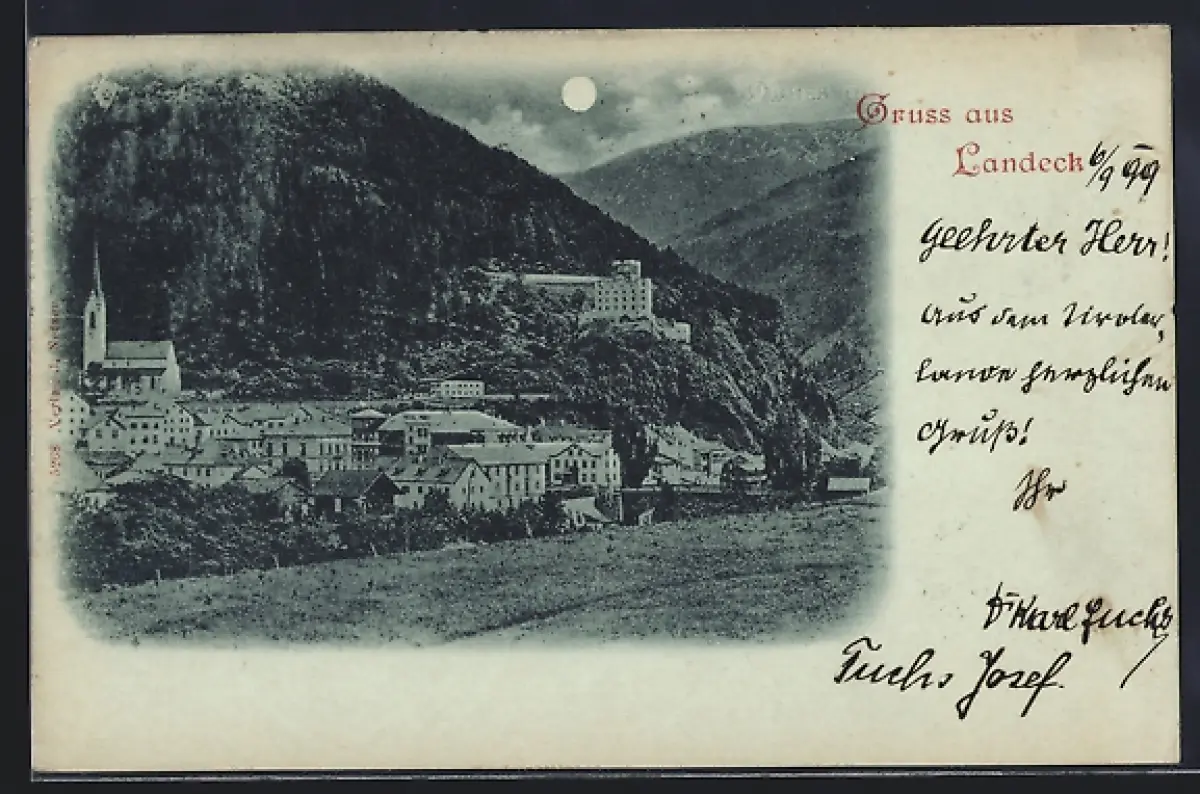 Gruss aus
Landeck 6/9 99
Geehrter Herr!
Aus dem Tiroler-
lande herzlichen
Gruß!
Ihr
Dr Karl Fuchs
Fuchs Josef.
5268 Verlag